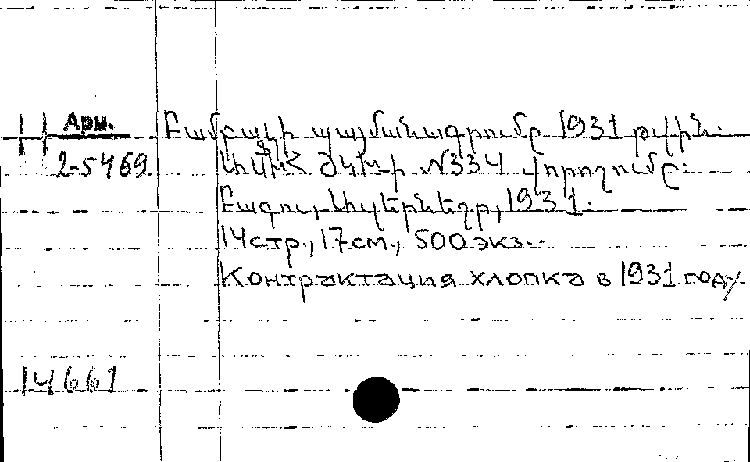 Арм.
2-5469
Բամբակի պայմանագրումը 1931 թվին.
ԺԿԽ-ի №334 վորոշումը:
Բագու, 1931.
14стр., 17см., 500экз.
Контрактация хлопка в 1931 году.
14661